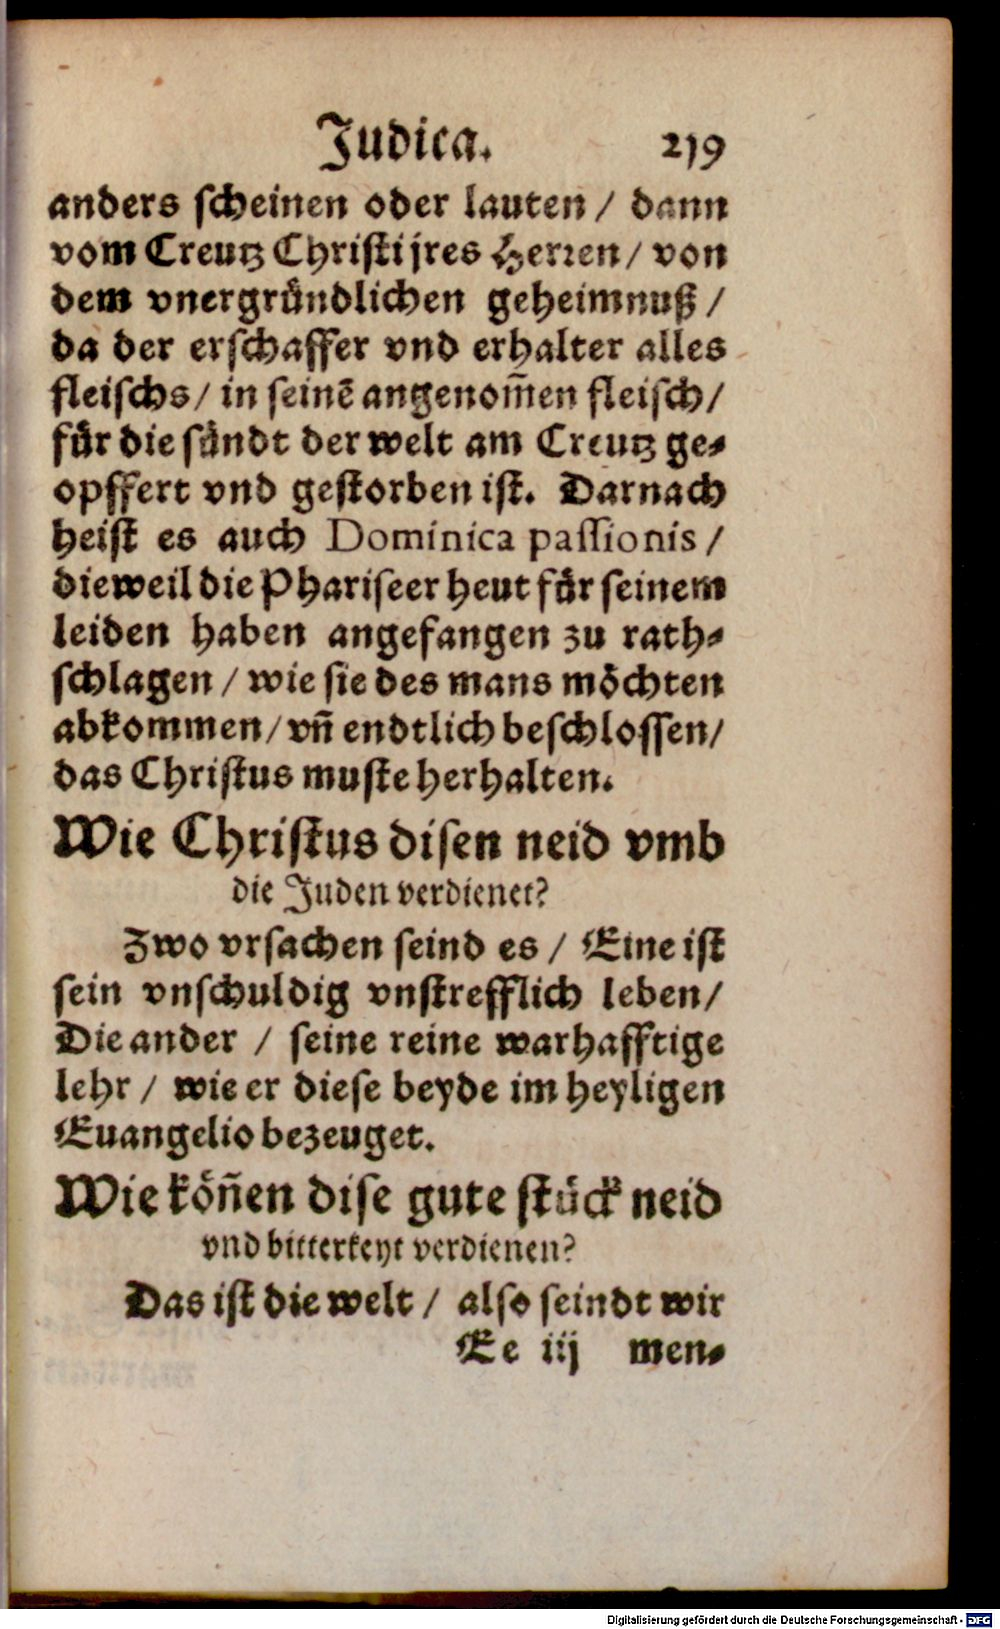 Judica. 219
anders scheinen oder lauten / dann
vom Creutz Christi jres Herren / von
dem vnergründlichen geheimnuß /
da der erschaffer vnd erhalter alles
fleischs / in seinē angenom̄en fleisch /
für die sündt der welt am Creutz ge-
opffert vnd gestorben ist. Darnach
heist es auch Dominica passionis /
dieweil die Phariseer heut für seinem
leiden haben angefangen zu rath-
schlagen / wie sie des mans möchten
abkommen / vn̄ endtlich beschlossen /
das Christus muste herhalten.
Wie Christus disen neid vmb
die Juden verdienet?
Zwo vrsachen seind es / Eine ist
sein vnschuldig vnstrefflich leben /
Die ander / seine reine warhafftige
lehr / wie er diese beyde im heyligen
Euangelio bezeuget.
Wie kön̄en dise gute stück neid
vnd bitterkeyt verdienen?
Das ist die welt / also seindt wir
Ee iij men-
Digitalisierung gefördert durch die Deutsche Forschungsgemeinschaft - DFG